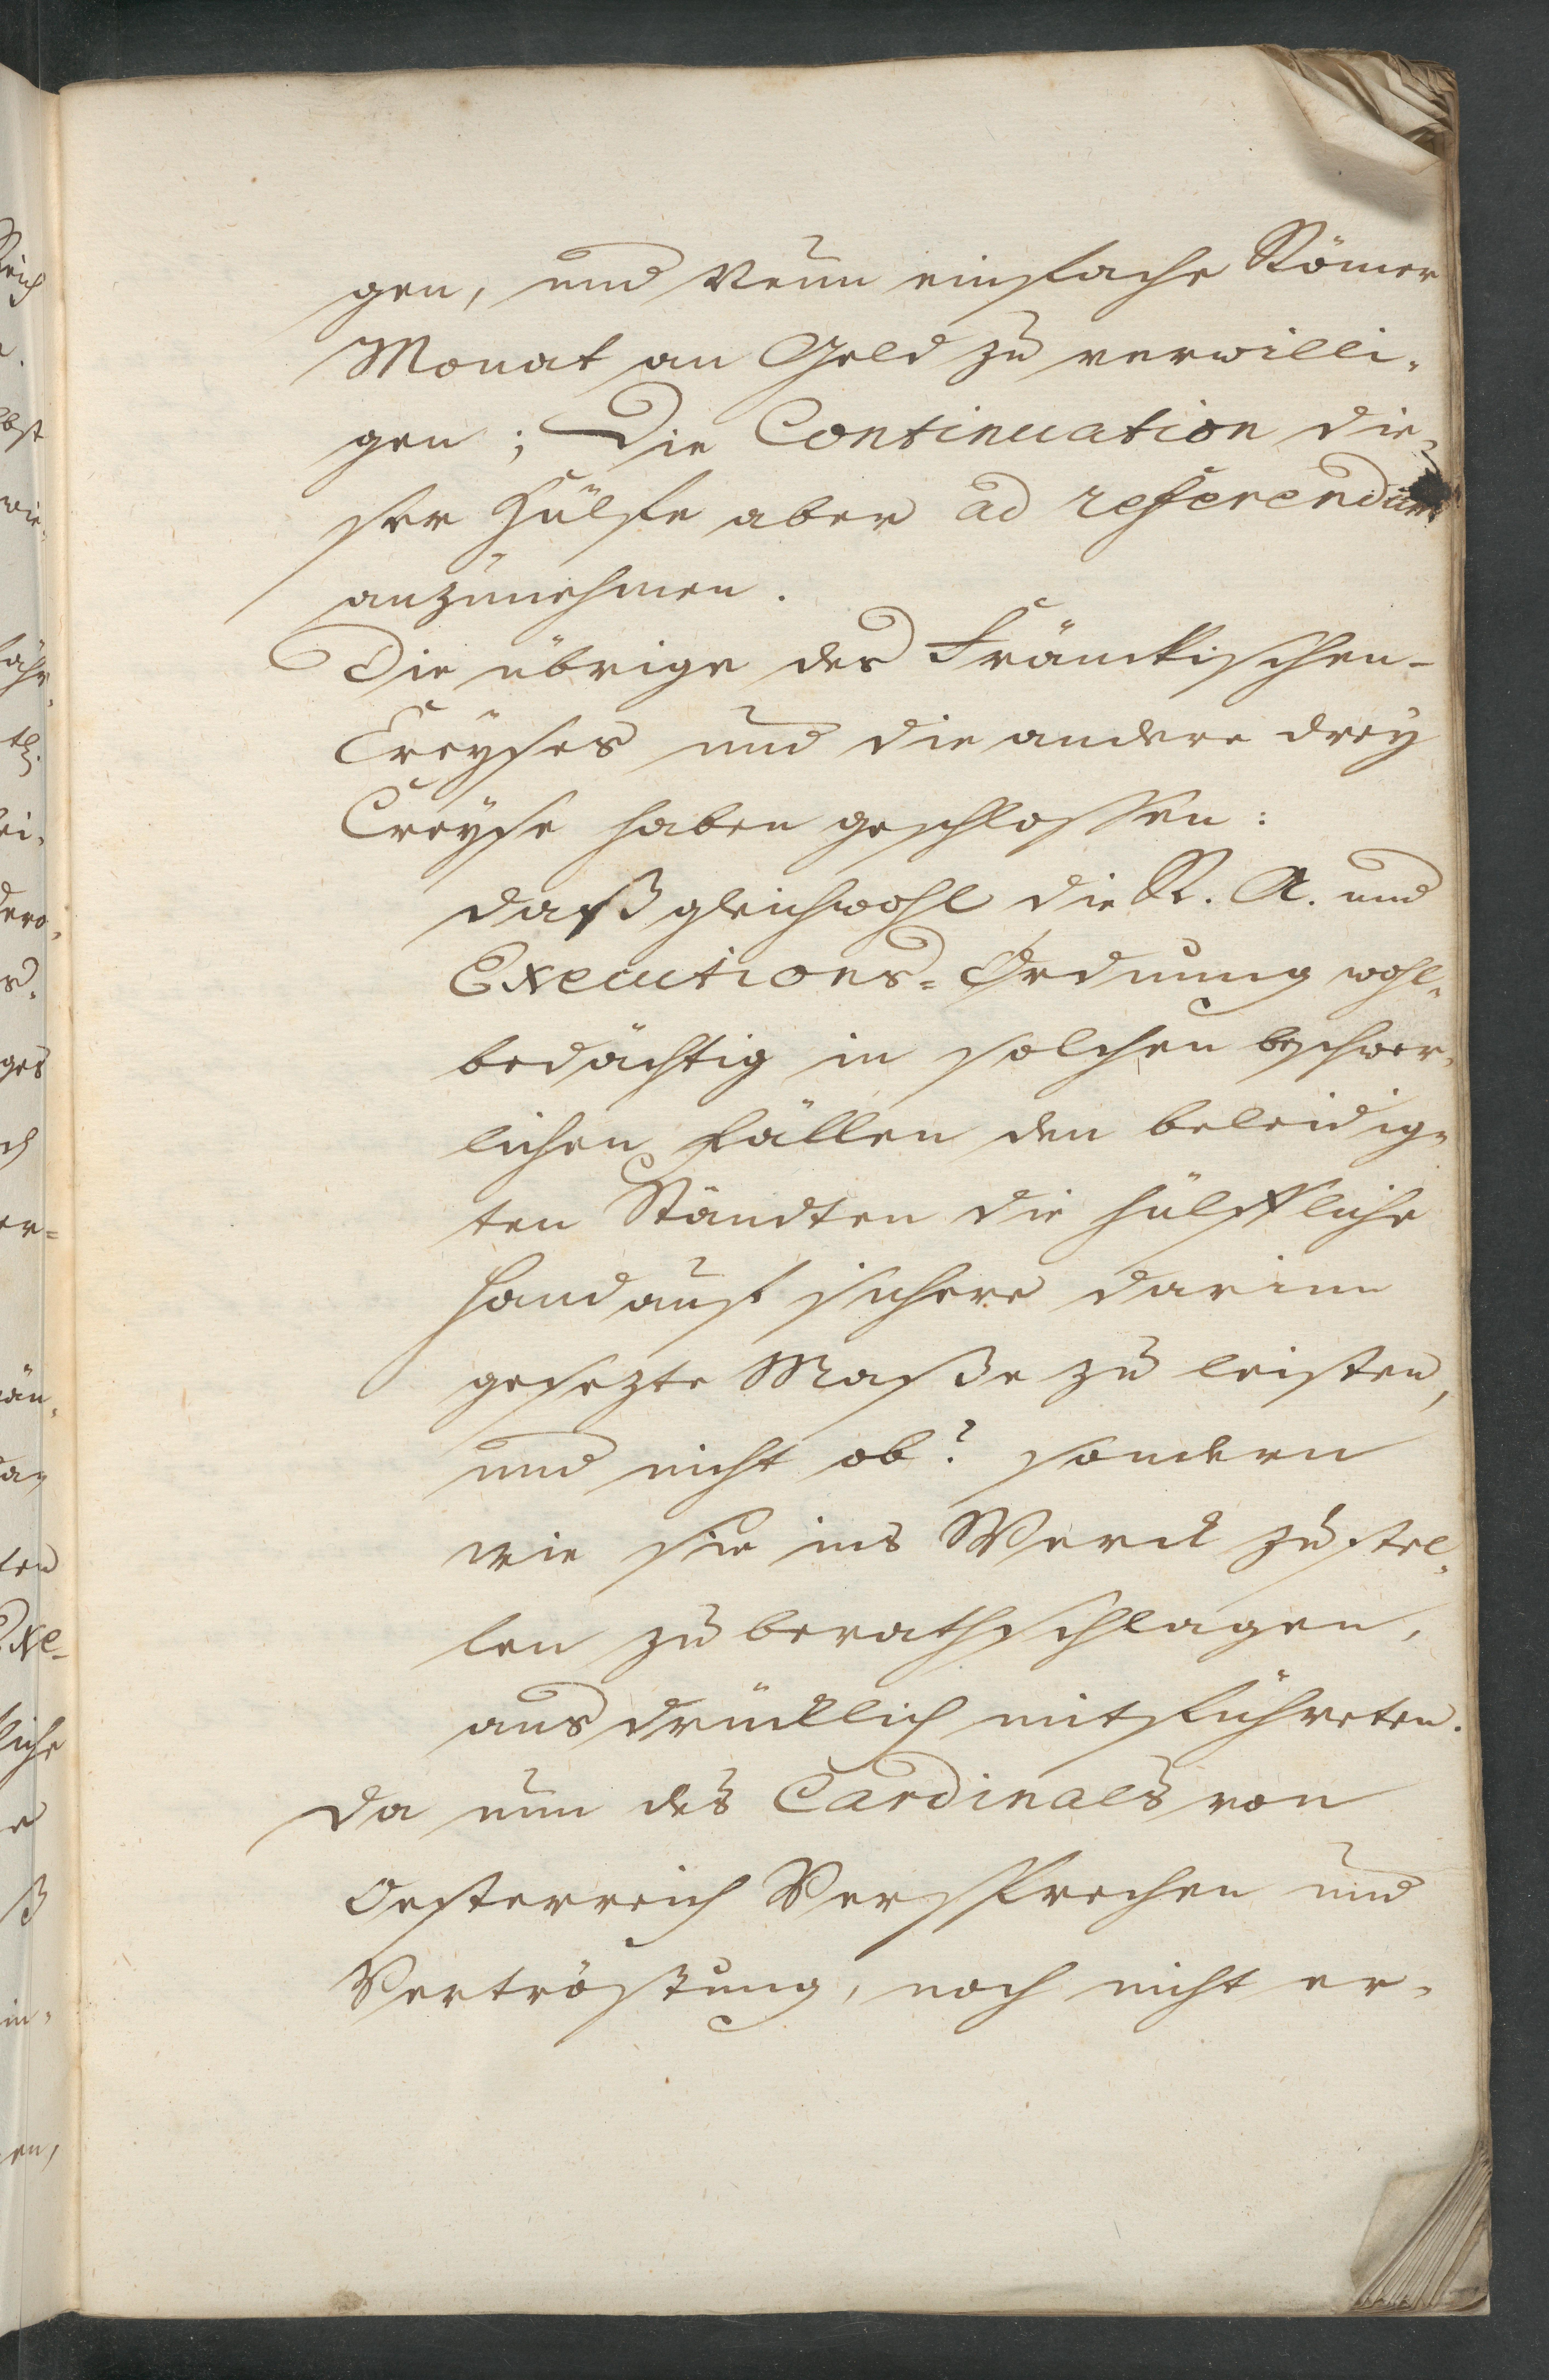 gen, und Neun einfache Römer
Monat an Geld zu verwilli-
gen; Die Continuation die-
ser Hülfe aber ad referendum
anzunehmen.
Die übrige des Fränckischen-
Creyses und die andere drey
Creyse haben geschlossen:
daß gleichwohl die R. A. und
Executions-Ordnung wohl-
bedächtig in solchen beschwer-
lichen Fällen den beleidig-
ten Ständten die hülffliche
Hand auf sichere darinn
gesezte Maße zu leisten,
und nicht ob? sondern
wie sie ins Werck zu stel-
len zu berathschlagen,
ausdrücklich mitführeten.
Da nun des Cardinals von
Oesterreich Versprechen und
Vertröstung, noch nicht er-